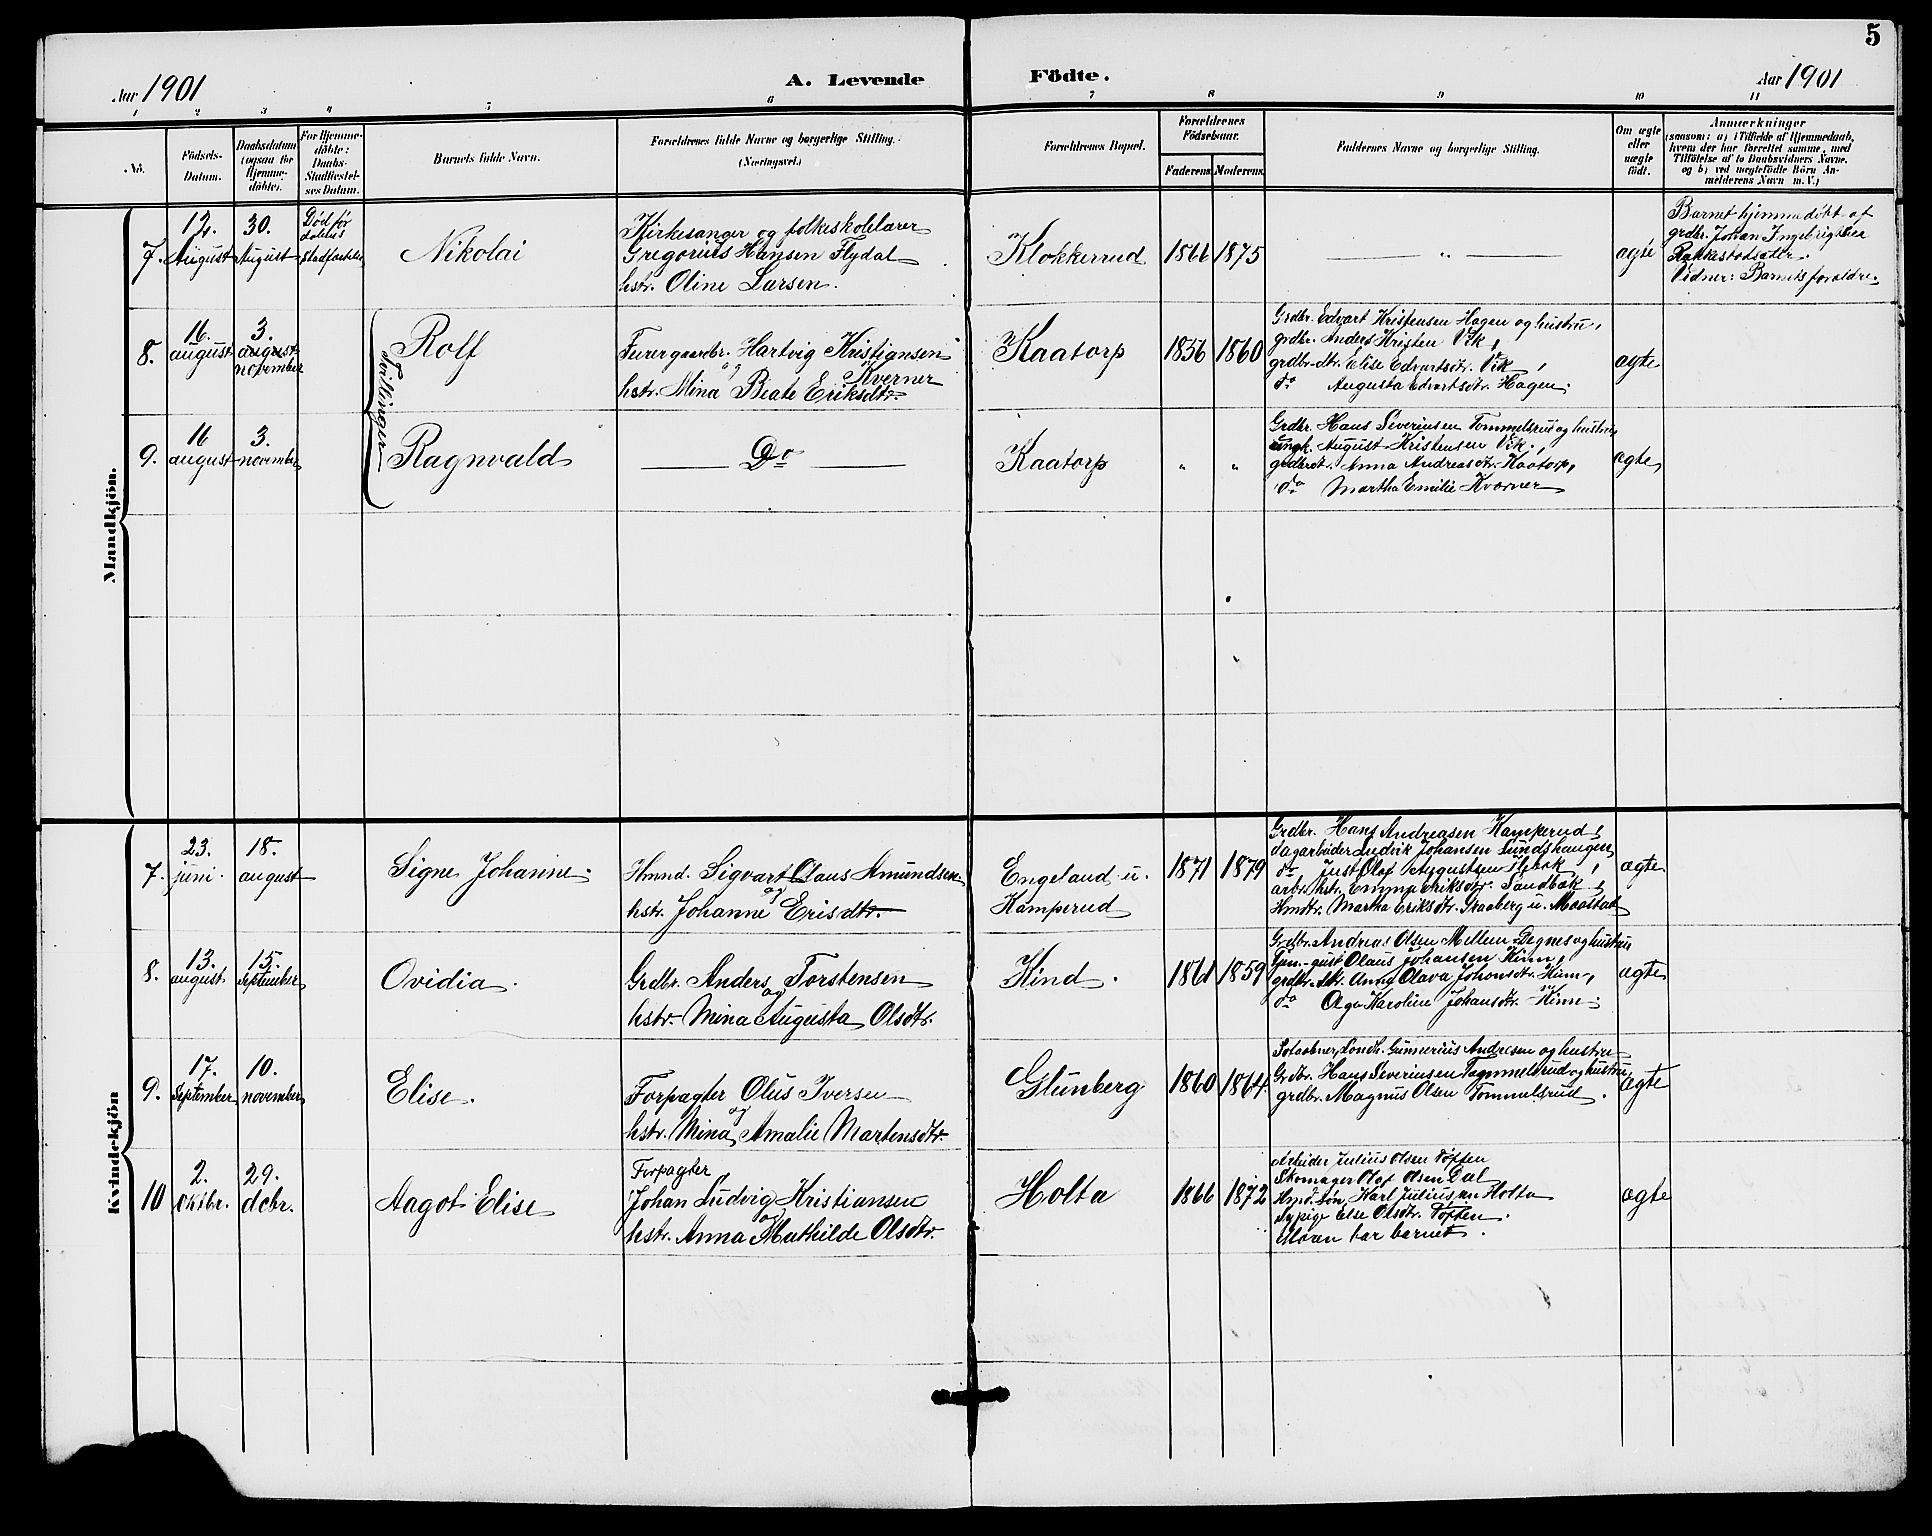 5
Aar 1901
A. Levende Födte.
Aar 1901
1 2 3 4 5 6 7 8 9 10 11
No.
Födsels-
Datum.
Daabsdatum
(ogsaa for
Hjemme-
döbte).
For Hjemme-
döbte:
Daabs-
Stadfæstel-
ses Datum.
Barnets fulde Navn.
Forældrenes fulde Navne og borgerlige Stilling.
(Næringsvei.)
Forældrenes Bopæl.
Forældrenes
Födselsaar.
Faderens. Moderens.
Faddernes Navne og borgerlige Stilling.
Om ægte
eller
uægte
födt.
Anmærkninger
(saasom: a) i Tilfælde af Hjemmedaab,
hvem der har forrettet samme, med
Tilföielse af to Daabsvidners Navne.
og b) ved uægtefödte Börn An-
melderens Navn m. V.)
Mandkjön.
7.
12.
August
30.
August
Død før
daabens
stadfæstelse
Nikolai
Kirkesanger og folkeskolelærer
Gregorius Hansen Flydal
hstr. Oline Larsen.
Klokkerud
1866
1875
— „ —
ægte
Barnet hjemmedøbt af
grdbr. Johan Ingebrigtsen
Rakkestadsæter.
Vidner: Barnets forældre.
8.
16.
august
3.
august
november
Tvillinger
Rolf
Furer gaardbr. Hartvig Kristiansen
og Kverner
hstr. Mina Beate Eriksdtr.
Kaatorp
1856
1860
Grdbr. Edvart Kristensen Hagen og hustru,
grdbr. Anders Kristen Vik,
grdbr-dtr. Elise Edvartsdtr. Vik,
do Augusta Edvartsdtr. Hagen.
ægte
9.
16
august
3.
november
Ragnvald
— Do —
Kaatorp
„
„
Grdbr. Hans Severinsen Tommelsrud og hustru,
ungk. August Kristensen Vik,
grdbrdtr. Anna Andreasdtr. Kaatorp,
do Martha Emilie Kværner
ægte
Kvindekjön
7.
23.
juni.
18.
august
Signe Johanne.
Hmnd. Sigvart Olaus Amundsen
og
hstr. Johanne Erisdtr.
Engeland u.
Kamperud
1871
1879
Grdbr. Hans Andreasen Kamperud,
dagarbeider Ludvik Johansen Lundshaugen,
do Just Olaf Augustsen
arb. hstr. Emma Eriksdtr. Sandbæk,
Hmdtr. Martha Eriksdtr. Skaaberg u. Maastad
ægte
8.
13.
august.
15.
September
Ovidia.
Grdbr. Anders Torstensen
og
hstr. Mina Augusta Olsdtr.
Kind.
1861
1859
Grdbr. Andreas Olsen Mellem Degnes og hustru
Olaus Johansen Kinn,
grdbr. dtr. Anna Olava Johansdtr. Kinn,
do Olga Karoline Johansdtr. Kinn.
ægte
9.
17.
September
10.
november
Elise.
Forpagter Olus Iversen
og
hstr. Mina Amalie Martensdtr.
Glunberg
1860
1864
Londh. Gunnerius Andresen og hustru
Grdbr. Hans Severinsen Tommelsrud og hustru,
grdbr. Magnus Olsen Tommelsrud.
ægte
10
2.
Oktbr.
29.
dcbr.
Aagot Elise
Forpagter
Johan Ludvig Kristiansen
og
hstr. Anna Mathilde Olsdtr.
Holta
1866
1872
Arbeider Julius Olsen Toften
Skomager Olaf Olsen Dal
Hmd. søn Karl Juliussen Holta
Sypige Else Olsdtr. Toften.
Moren bar barnet.
ægte